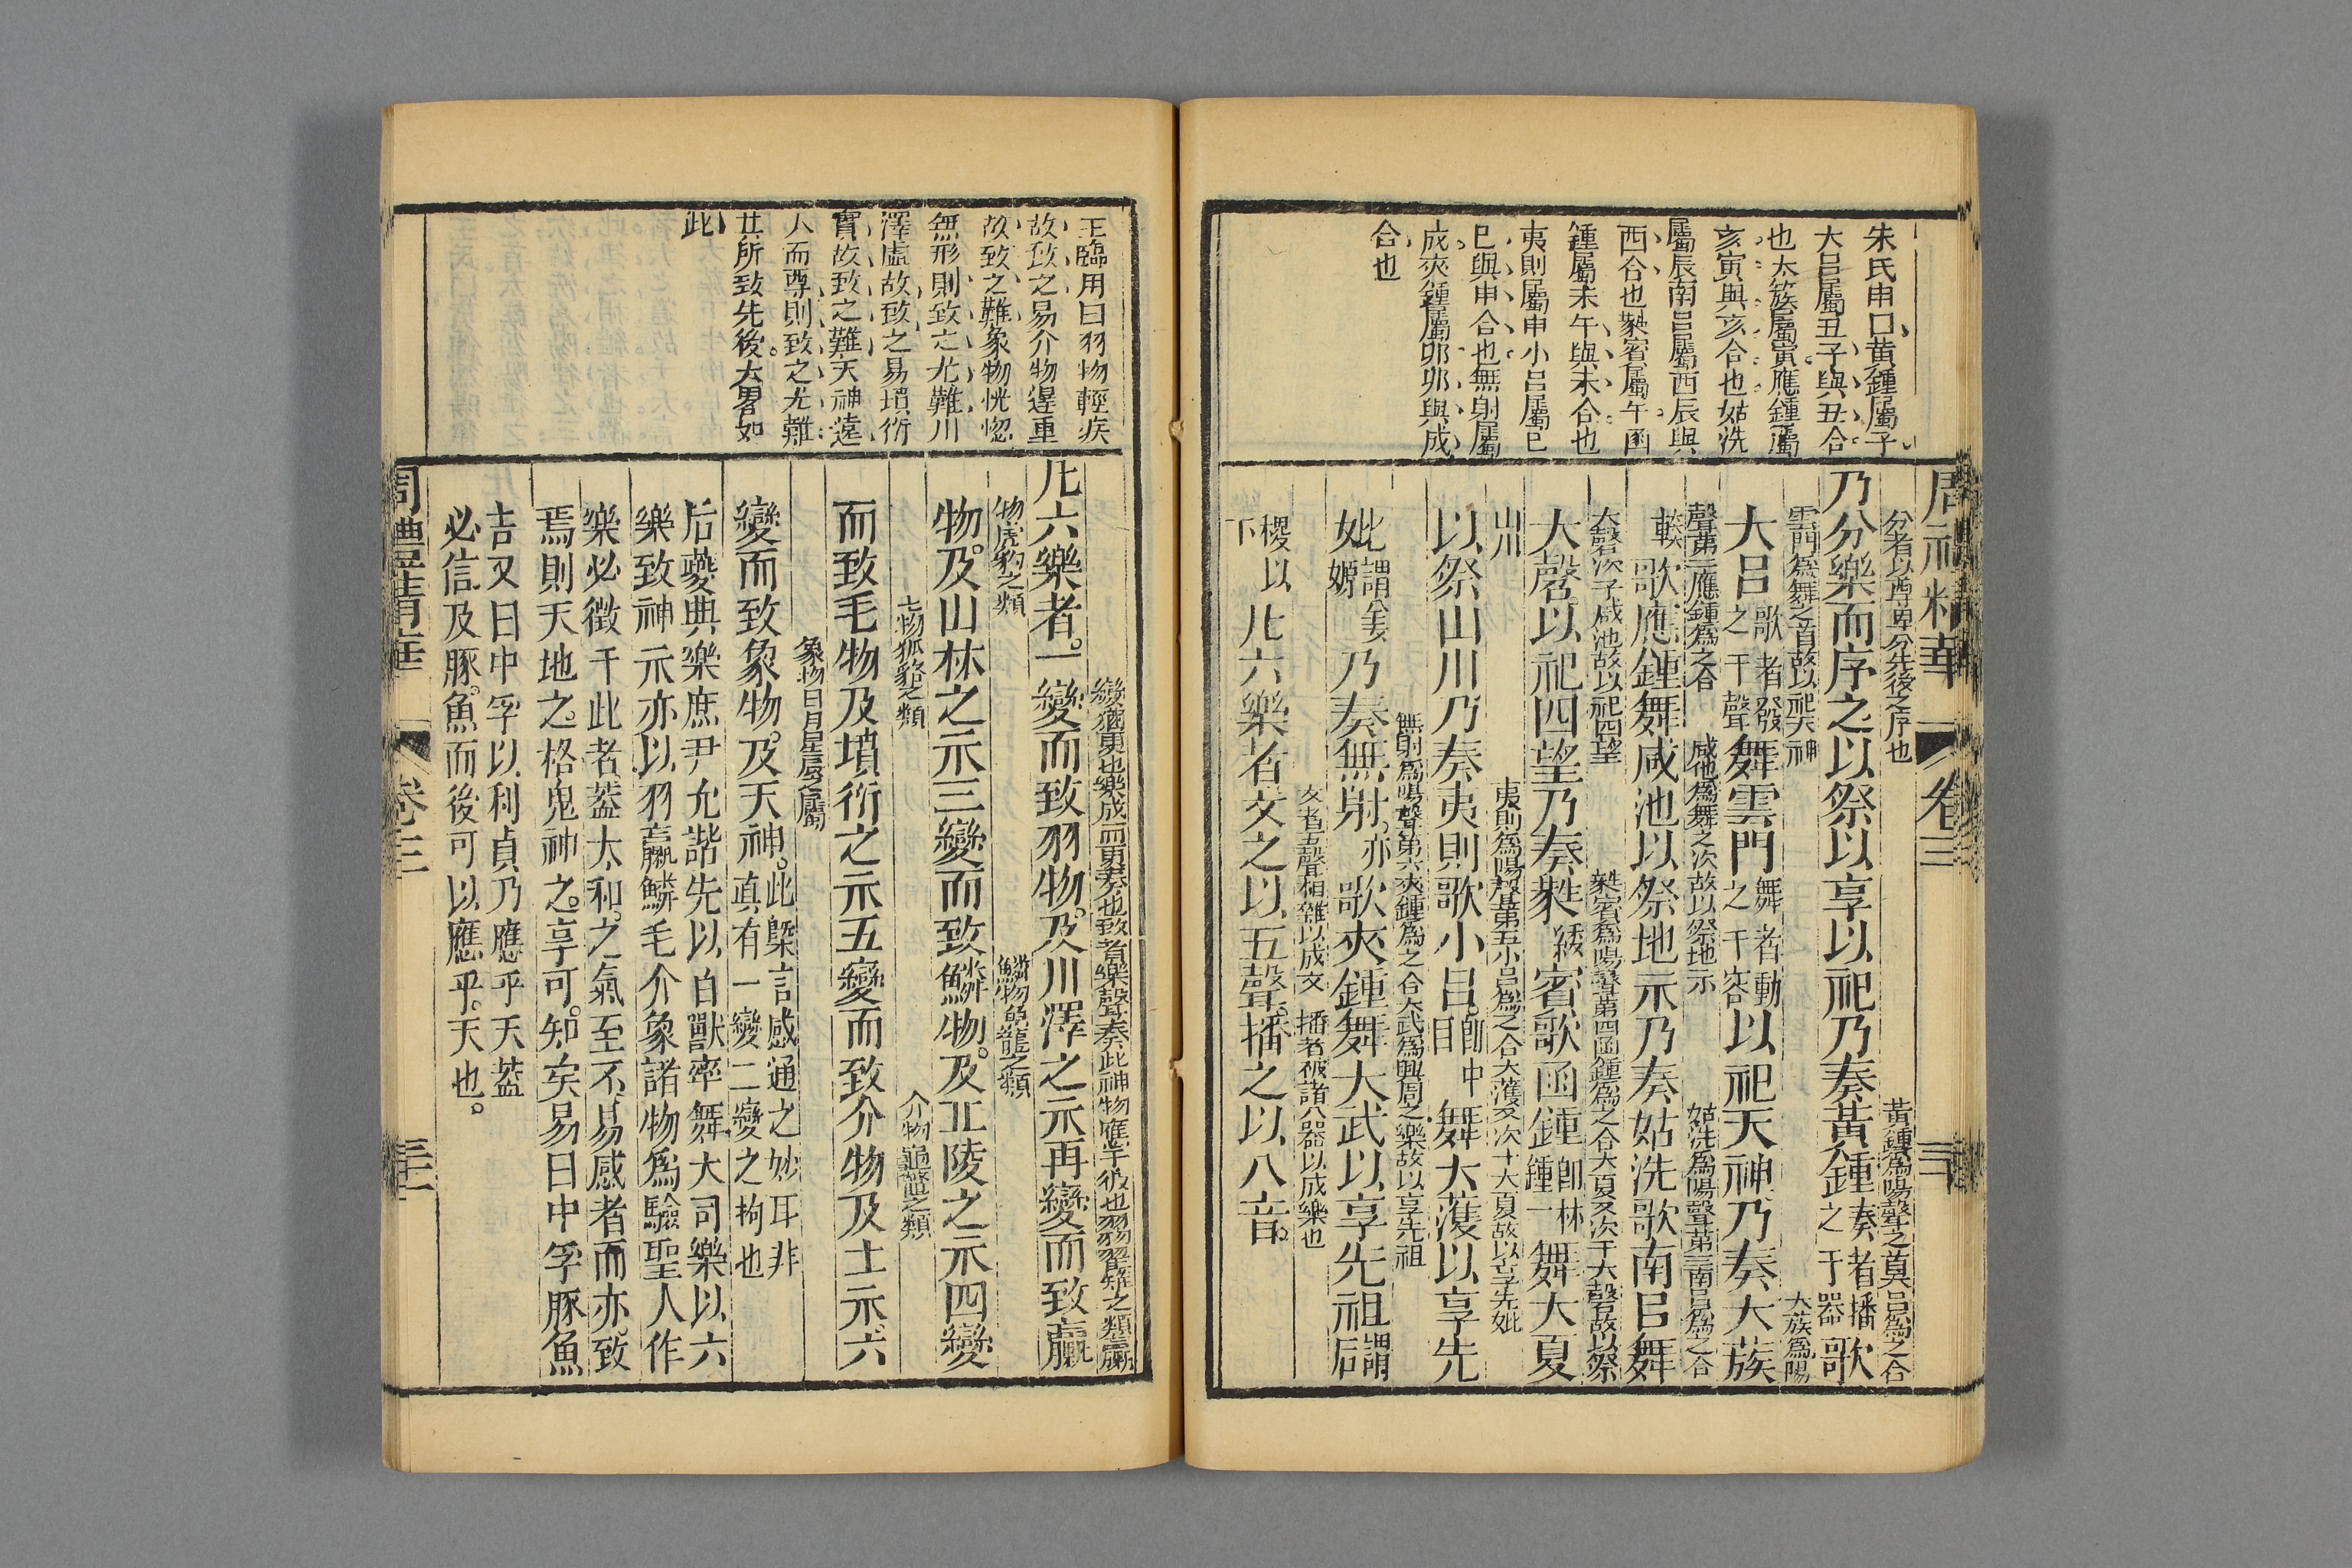 朱氏申曰黄鍾屬子
大呂屬丑子與丑合
也太簇屬寅應鍾屬
亥寅與亥合也姑洗
屬辰南呂屬酉辰與
酉合也蕤賓屬午函
鍾屬未午與未合也
夷則屬申小呂屬巳
巳與申合也無射屬
戍夾鍾屬卯卯與戍
合也
周禮精華
卷三
分者以尊卑分先後之序也
黃鍾爲陽聲之首大呂爲之合
乃分樂而序之以祭以享以祀乃奏黃鍾奏者播之于器歌
雲門爲舞之首故以祀天神
大蔟爲陽
大呂歌者發之于聲舞雲門舞者動之于容以祀天神乃奏大蔟
聲第二應鍾爲之合
咸池爲舞之次故以祭地示
姑洗爲陽聲第三南呂爲之合
歌應鍾舞咸池以祭地示乃奏姑洗歌南呂舞
大磬次于咸池故以祀四望
蕤賓爲陽聲第四函鍾爲之合大夏又次于大磬故以祭
大磬以祀四望乃奏蕤綏賓歌函鍾卽林鍾一舞大夏
山川
夷則爲陽聲第五小呂爲之合大濩又次于大夏故以享先妣
以祭山川乃奏夷則歌小呂卽中呂舞大濩以享先
無射爲陽聲第六夾鍾爲之合大武爲興周之樂故以享先祖
妣謂姜嫄乃奏無射亦歌夾鍾舞大武以享先祖謂后
文者五聲相雜以成文
播者被諸八器以成樂也
稷以下凡六樂者文之以五聲播之以八音
變猶更也樂成而更奏也致者樂聲奏此神物應于彼也羽物翟雉之類羸
凡六樂者一變而致羽物及川澤之示再變而致羸
物虎豹之類
鱗物魚龍之類
物及山林之示三變而致鱗物及丘陵之示四變
毛物狐貉之類
介物龜鼈之類
而致毛物及墳衍之示五變而致介物及土示六
象物日月星辰之屬
變而致象物及天神此槩言感通之妙耳非真有一變二變之拘也
后夔典樂庶尹允諧先以百獸率舞大司樂以六
樂致神示亦以羽羸鱗毛介象諸物爲驗聖人作
樂必徵于此者葢太和之氣至不易感者而亦致
焉則天地之格鬼神之享可知矣易曰中孚豚魚
吉又曰中孚以利貞乃應乎天葢
必信及豚魚而後可以應乎天也
王臨用曰羽物輕疾
故致之易介物遲重
故致之難象物恍惚
無形則致之尤難川
澤虛故致之易墳衍
實故致之難天神遠
人而尊則致之尤難
其所致先後大畧如
此
周禮精華
卷三